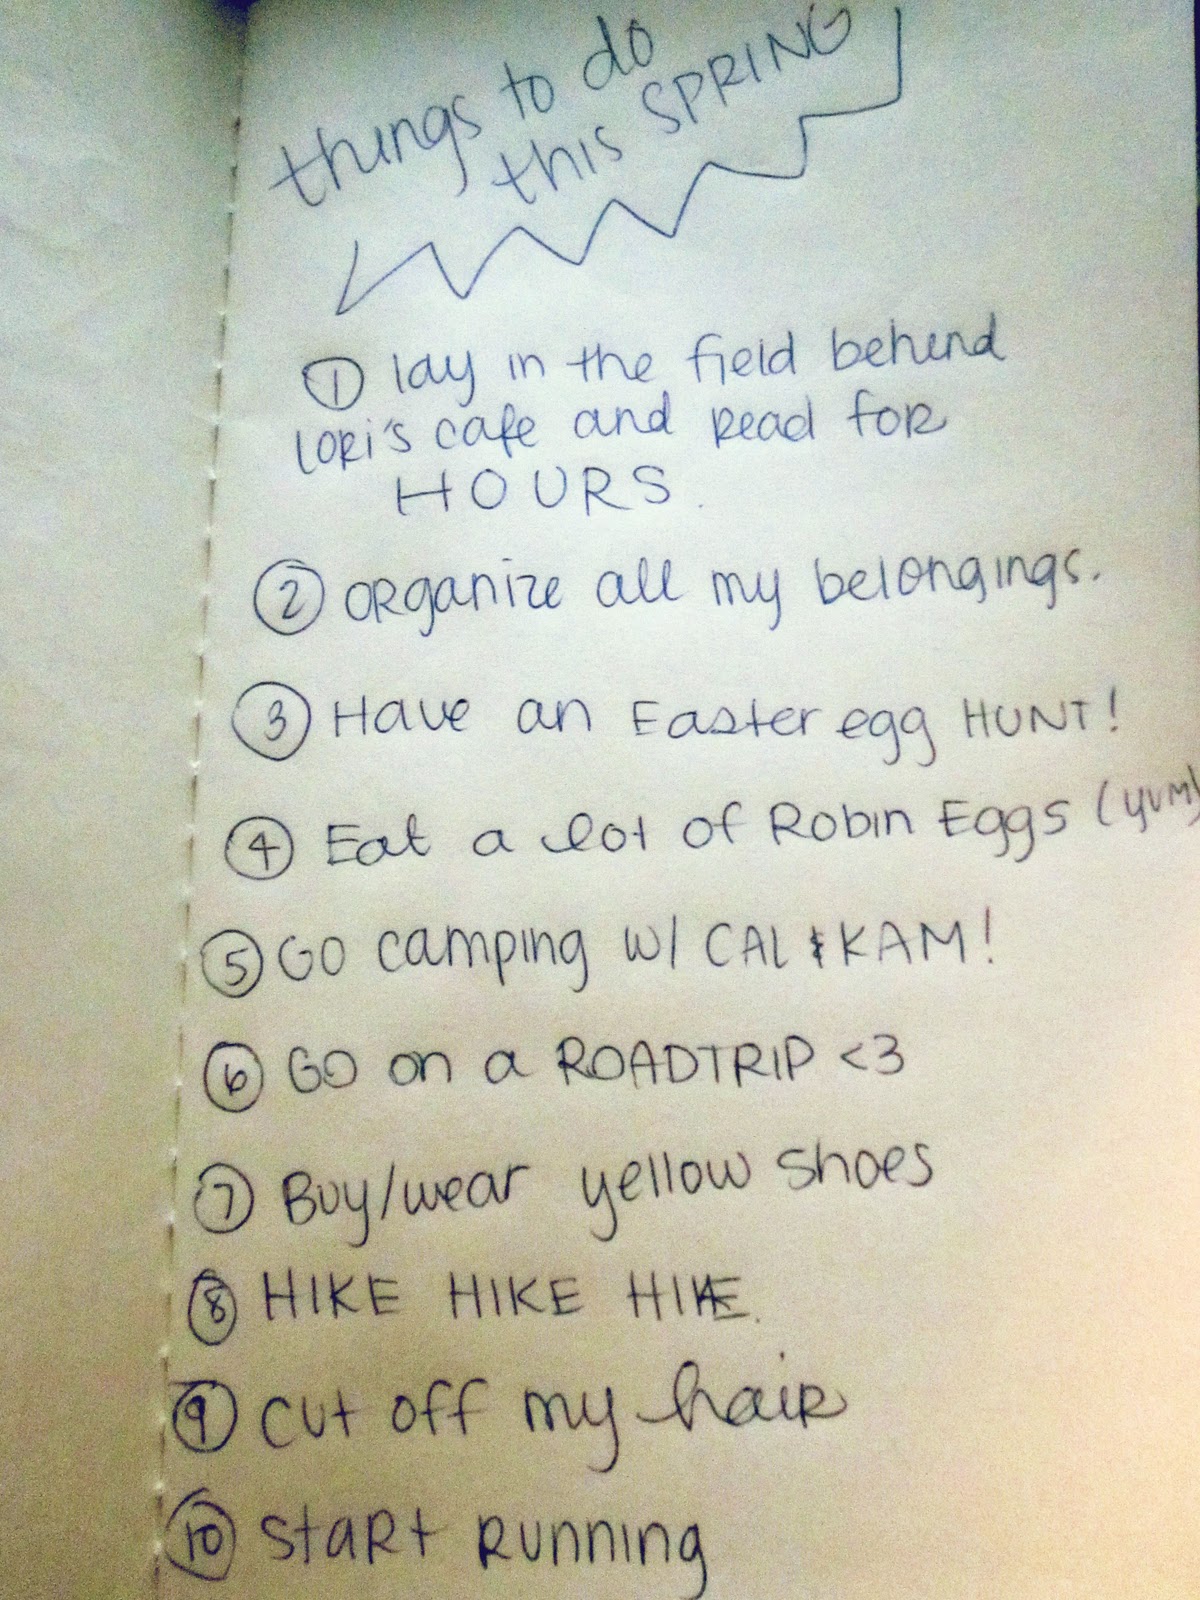 things to do
this SPRING
① lay in the field behind
LORi's cafe and Read foR
HOURS.
② ORganize all my belongings.
③ Have an Easter egg HUNT!
④ Eat a lot of Robin Eggs (YUM)
⑤ GO camping w/ CAL & KAM!
⑥ GO on a ROADTRIP <3
⑦ Buy/wear yellow shoes
⑧ HIKE HIKE HIKE.
⑨ cut off my haiR
⑩ StaRt Running